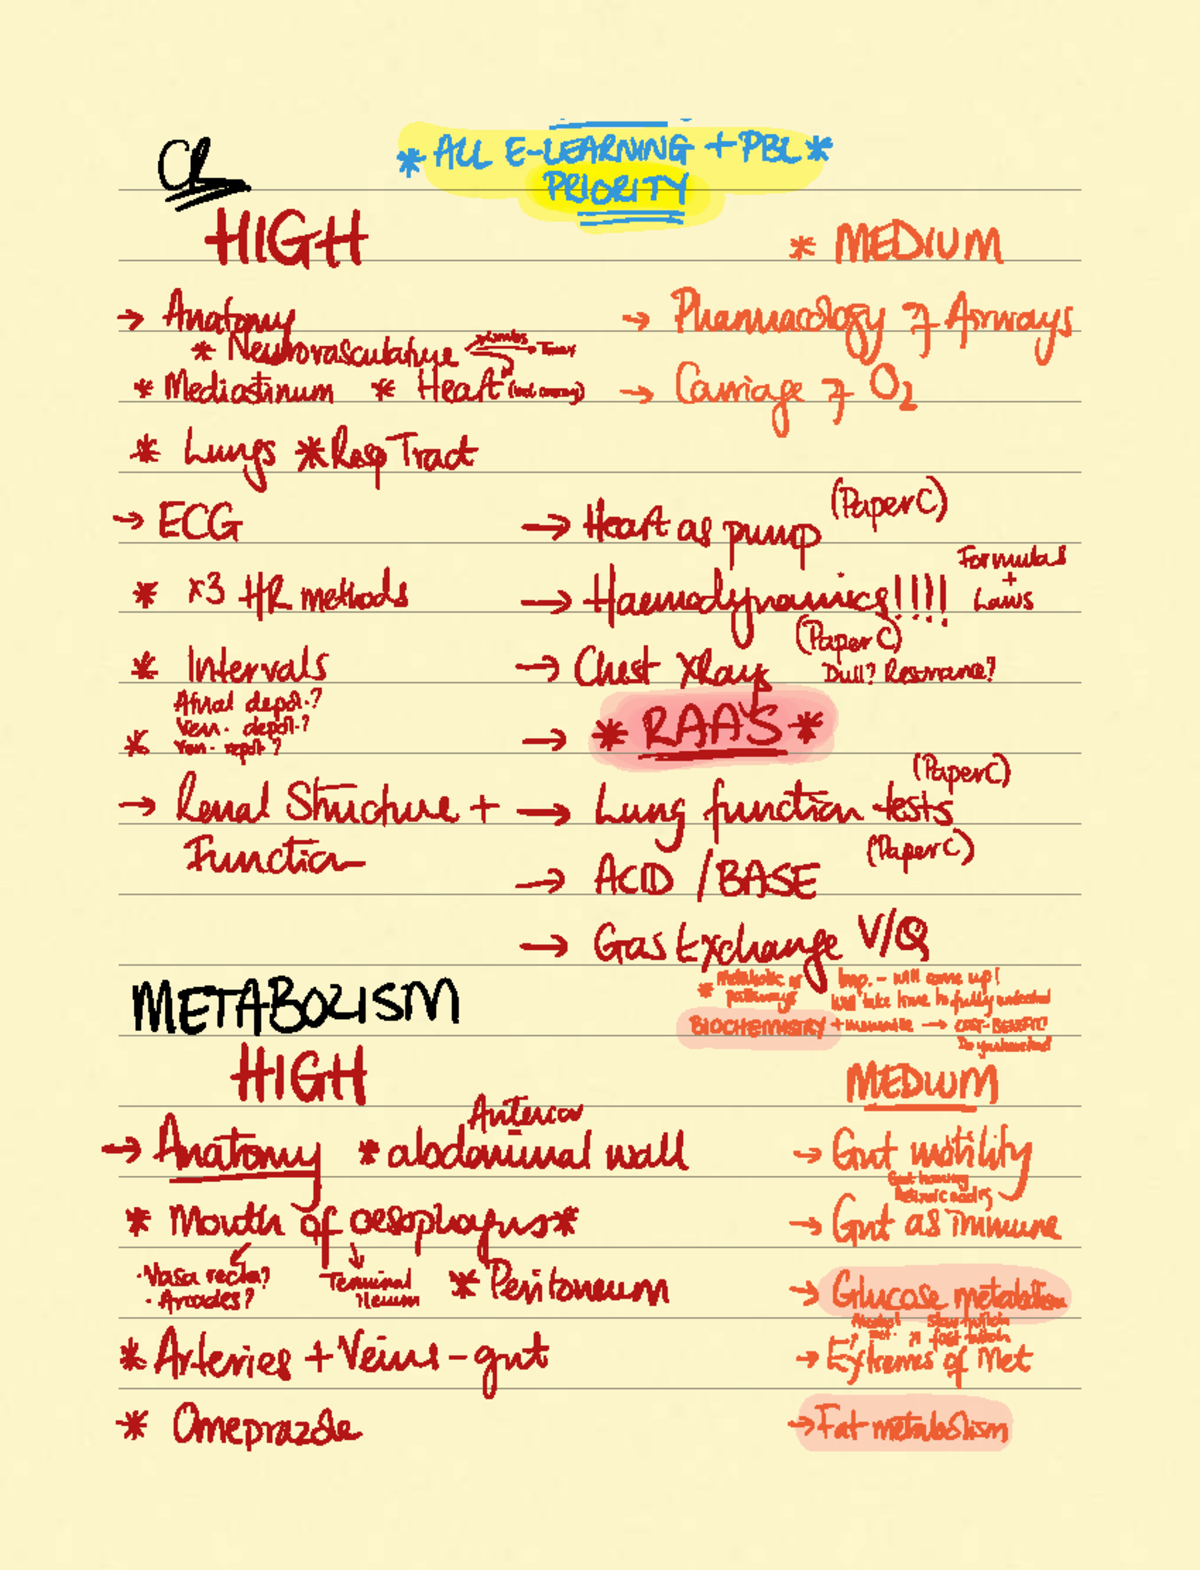 CR
* ALL E-LEARNING + PBL *
PRIORITY
HIGH
* MEDIUM
→ Anatomy
* Neurovasculature
* Mediastinum * Heart
* Lungs * Resp Tract
→ Pharmacology of Airways
→ Carriage of O2
→ ECG
* x3 HR methods
* Intervals
Atrial depol.?
Ven. depol.?
* Ven. repol.?
→ Renal Structure +
Function
→ Heart as pump (Paper C)
→ Haemodynamics!!!! Formulas
+
Laws
(Paper C)
→ Chest XRay Dull? Resonance?
→ * RAAS *
→ Lung function tests (Paper C)
→ ACID / BASE (Paper C)
→ Gas Exchange V/Q
METABOLISM
* Metabolic pathways
Imp. - will come up!
Will take time to fully understand
BIOCHEMISTRY + → COST-BENEFIT?
HIGH
MEDIUM
→ Anatomy * Anterior abdominal wall
* Mouth of oesophagus *
· Vasa recta?
· Arcades?
Terminal
Ileum
* Peritoneum
* Arteries + Veins - gut
* Omeprazole
→ Gut motility
Gut homing
Retinoic acid
→ Gut as immune
→ Glucose metabolism
Alcohol met. Slow twitch
fast twitch
→ Extremes of Met
→ Fat metabolism